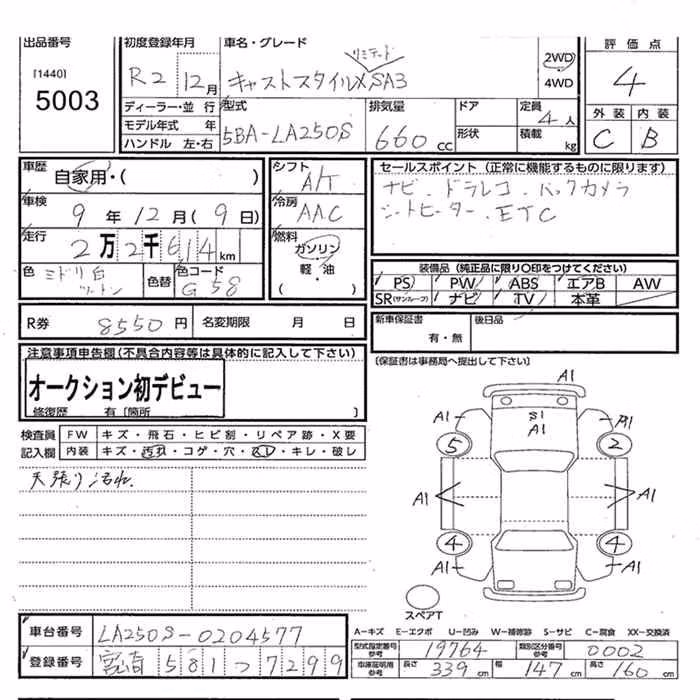 出品番号 初度登録年月 車名・グレード リミテッド 2WD 4WD 評価点
[1440] 5003 R2 12月 キャストスタイルX SA3 4
ディーラー・並行 型式 排気量 ドア 定員 4人 外装 内装
モデル年式 年 5BA-LA250S 660cc 形状 積載 kg C B
ハンドル 左・右
車歴 自家用・( ) シフト A/T セールスポイント (正常に機能するものに限ります)
車検 9年12月(9日) 冷房 AAC ナビ・ドラレコ・バックカメラ
シートヒーター・ETC
走行 2万2千614km 燃料 ガソリン 軽・油 ( )
色 ミドリ白 ツートン 色替 色コード G58
装備品(純正品に限り○印をつけてください)
PS PW ABS エアB AW
SR(サンルーフ) ナビ TV 本革
R券 8550円 名変期限 月 日
新車保証書 有・無 後日品
注意事項申告欄(不具合内容等は具体的に記入して下さい) (保証書は事務局へ提出して下さい)
オークション初デビュー
修復歴 有 [箇所 ]
検査員 記入欄
FW キズ・飛石・ヒビ割・リペア跡・X要
内装 キズ・汚れ・コゲ・穴・スレ・キレ・破レ
天張り汚れ
A1
S1
A1
A1 A1
5 2
A1 A1
4 4
A1 A1
スペアT
A-キズ E-エクボ U-凹み W-補修跡 S-サビ C-腐食 XX-交換済
車台番号 LA250S-0204577
型式指定番号 参考 19764 類別区分番号 参考 0002
登録番号 宮崎 581 つ 7299
車庫証明用 参考 長さ 339cm 幅 147cm 高さ 160cm